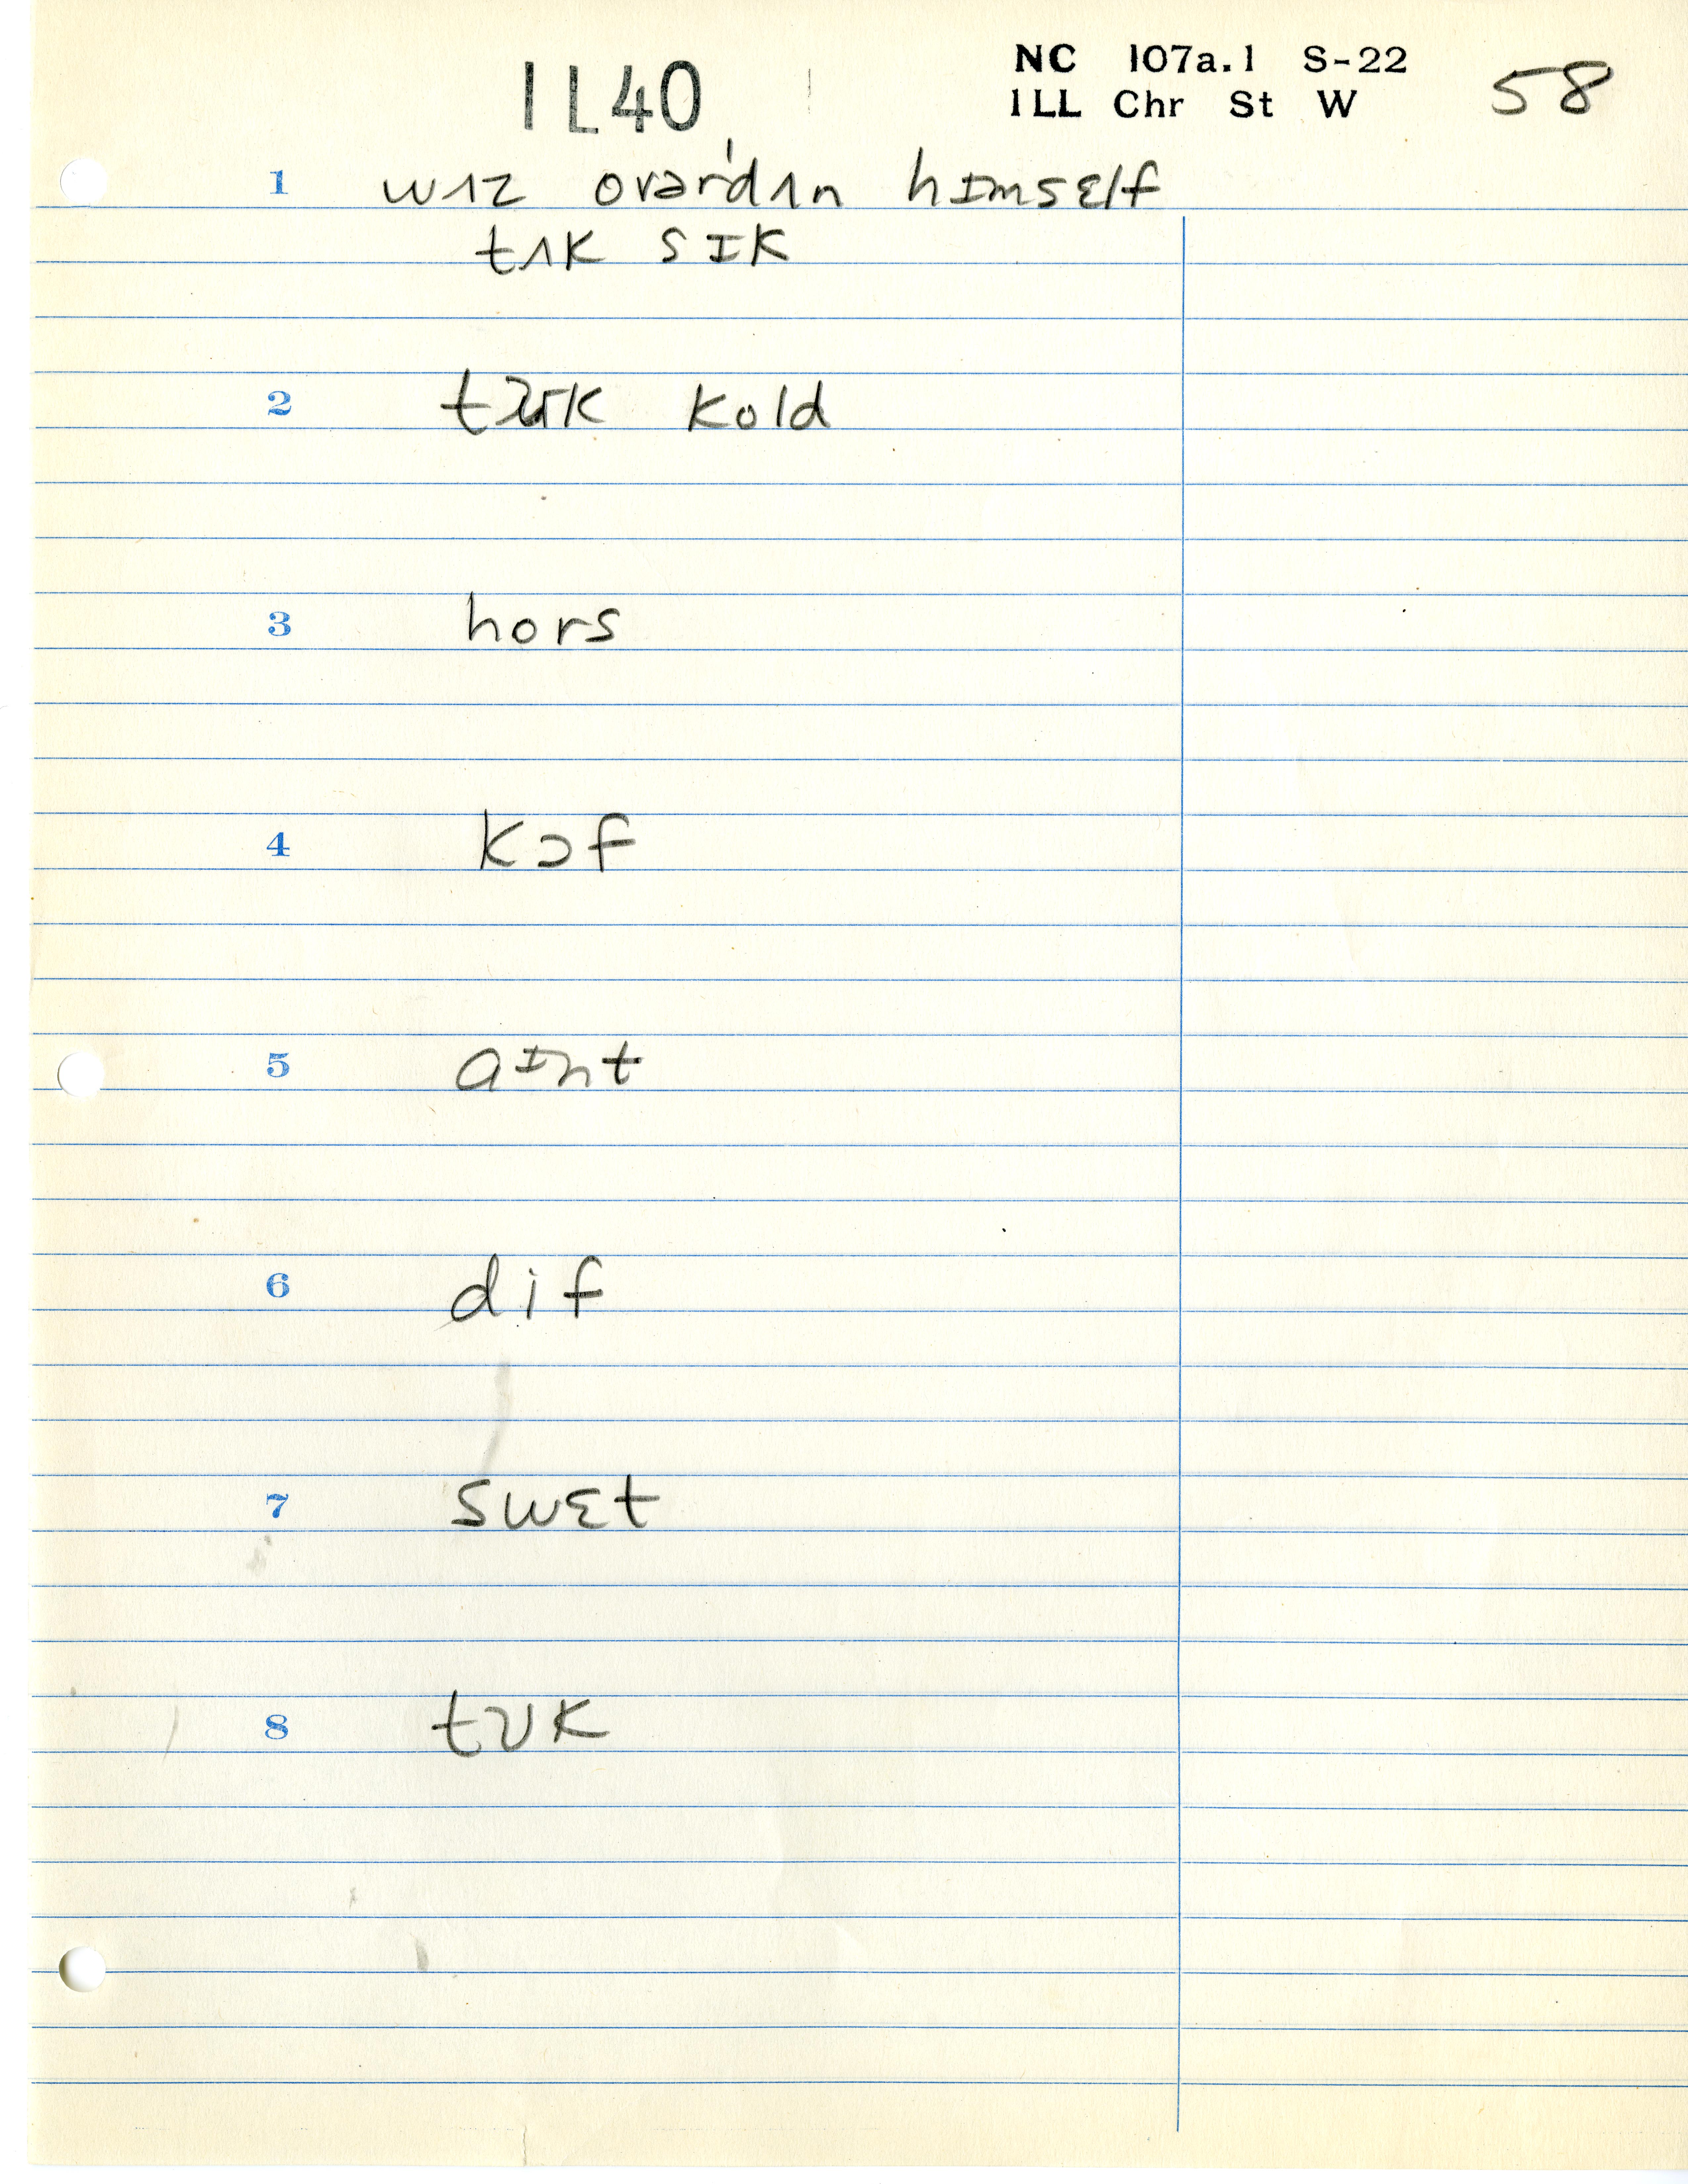 1L40
NC 107a.1 S-22
ILL Chr St W
58
1 wʌz ovər'dʌn hɪmsɛlf
tʌk sɪk
2 kold
3 hors
4 kɔf
5 aɪnt
6 dif
7 swɛt
8 tʊk